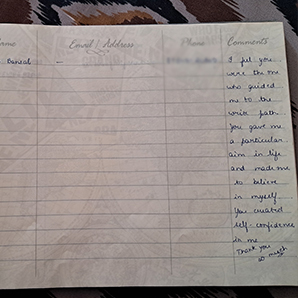 Name Email / Address Phone Comments
Bansal –
I felt you
were the one
who guided
me to the
write path
You gave me
a particular
aim in life
and made me
to believe
in myself
You created
self confidence
in me
Thank you
so much